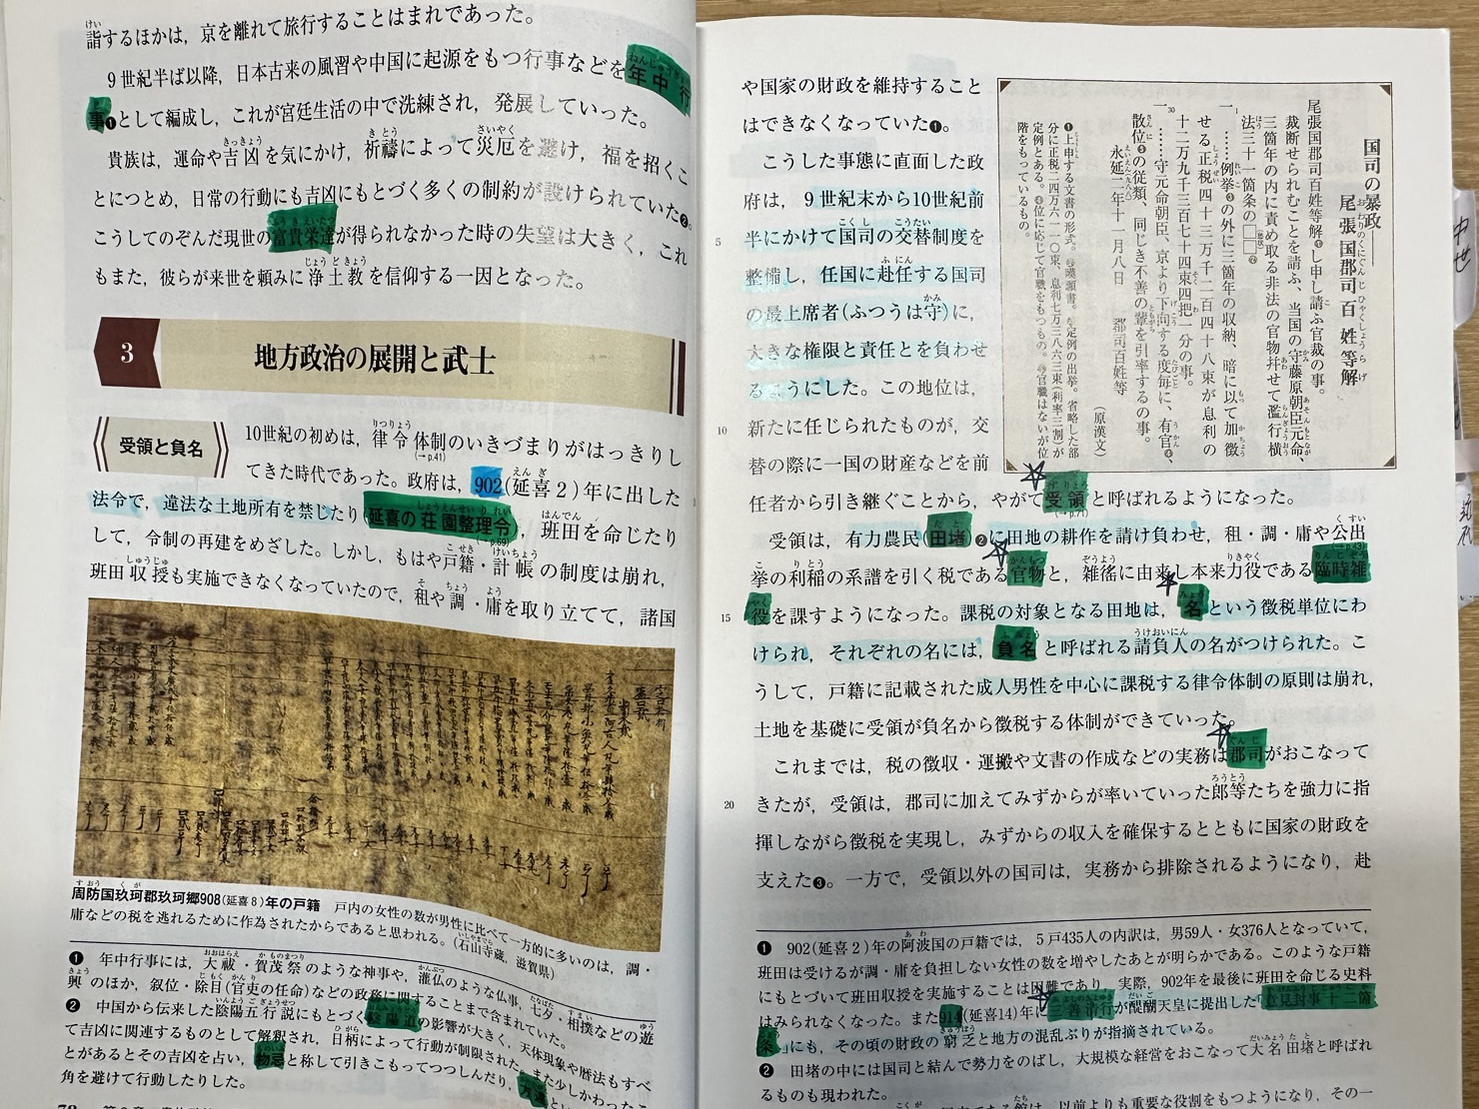 詣するほかは，京を離れて旅行することはまれであった。
9世紀半ば以降，日本古来の風習や中国に起源をもつ行事などを年中行
事❶として編成し，これが宮廷生活の中で洗練され，発展していった。
貴族は，運命や吉凶を気にかけ，祈禱によって災厄を避け，福を招くこ
とにつとめ，日常の行動にも吉凶にもとづく多くの制約が設けられていた❷。
こうしてのぞんだ現世の富貴栄達が得られなかった時の失望は大きく，これ
もまた，彼らが来世を頼みに浄土教を信仰する一因となった。
3 地方政治の展開と武士
受領と負名
10世紀の初めは，律令体制のいきづまりがはっきりし
(→p.41)
てきた時代であった。政府は，902(延喜2)年に出した
法令で，違法な土地所有を禁じたり(延喜の荘園整理令)，班田を命じたり
して，令制の再建をめざした。しかし，もはや戸籍・計帳の制度は崩れ，
班田収授も実施できなくなっていたので，租や調・庸を取り立てて，諸国
周防国玖珂郡玖珂郷908(延喜8)年の戸籍 戸内の女性の数が男性に比べて一方的に多いのは，調・
庸などの税を逃れるために作為されたからであると思われる。(石山寺蔵，滋賀県)
❶ 年中行事には，大祓・賀茂祭のような神事や，灌仏のような仏事，七夕・相撲などの遊
興のほか，叙位・除目(官吏の任命)などの政務に関することまで含まれていた。
❷ 中国から伝来した陰陽五行説にもとづく陰陽道の影響が大きく，天体現象や暦法もすべ
て吉凶に関連するものとして解釈され，日柄によって行動が制限された。また少しかわったこ
とがあるとその吉凶を占い，物忌と称して引きこもってつつしんだり，方違とい
角を避けて行動したりした。
や国家の財政を維持すること
はできなくなっていた❶。
こうした事態に直面した政
府は，9世紀末から10世紀前
5 半にかけて国司の交替制度を
整備し，任国に赴任する国司
の最上席者(ふつうは守)に，
大きな権限と責任とを負わせ
るようにした。この地位は，
10 新たに任じられたものが，交
替の際に一国の財産などを前
国司の暴政――
尾張国郡司百姓等解
尾張国郡司百姓等解❶し申し請ふ官裁の事。
裁断せられむことを請ふ、当国の守藤原朝臣元命、
三箇年の内に責め取る非法の官物幷せて濫行横
法三十一箇条の□□❷
一 ……例挙❸の外に三箇年の収納、暗に以て加徴
せる正税四十三万千二百四十八束が息利の
十二万九千三百七十四束四把一分の事。
一 ……守元命朝臣、京より下向する度毎に、有官❹、
散位❺の従類、同じき不善の輩を引率するの事。
永延二年十一月八日 郡司百姓等
(原漢文)
❶上申する文書の形式。❷嘆願書。❸定例の出挙。省略した部
分に正税二四万六一一〇束、息利七万三八六三束(利率三割)が
定例とある。❹位に応じて官職をもつもの。❺官職はないが位
階をもっているもの。
任者から引き継ぐことから，やがて受領と呼ばれるようになった。
(→p.71)
受領は，有力農民(田堵)❷に田地の耕作を請け負わせ，租・調・庸や公出
挙の利稲の系譜を引く税である官物と，雑徭に由来し本来力役である臨時雑
15 役を課すようになった。課税の対象となる田地は，名という徴税単位にわ
けられ，それぞれの名には，負名と呼ばれる請負人の名がつけられた。こ
うして，戸籍に記載された成人男性を中心に課税する律令体制の原則は崩れ，
土地を基礎に受領が負名から徴税する体制ができていった。
これまでは，税の徴収・運搬や文書の作成などの実務は郡司がおこなって
20 きたが，受領は，郡司に加えてみずからが率いていった郎等たちを強力に指
揮しながら徴税を実現し，みずからの収入を確保するとともに国家の財政を
支えた❸。一方で，受領以外の国司は，実務から排除されるようになり，赴
❶ 902(延喜2)年の阿波国の戸籍では，5戸435人の内訳は，男59人・女376人となっていて，
班田は受けるが調・庸を負担しない女性の数を増やしたあとが明らかである。このような戸籍
にもとづいて班田収授を実施することは困難であり，実際，902年を最後に班田を命じる史料
はみられなくなった。また914(延喜14)年に三善清行が醍醐天皇に提出した「意見封事十二箇
条」にも，その頃の財政の窮乏と地方の混乱ぶりが指摘されている。
❷ 田堵の中には国司と結んで勢力をのばし，大規模な経営をおこなって大名田堵と呼ばれ
るものも現われた。
中世